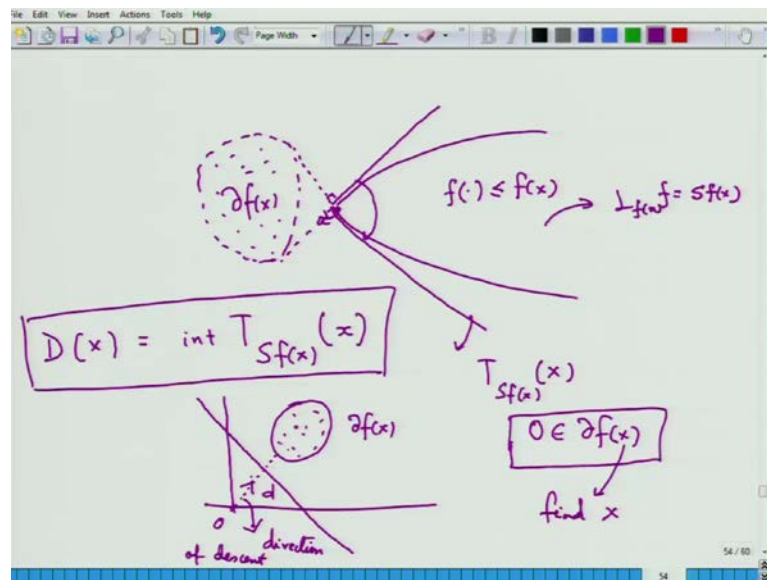 File Edit View Insert Actions Tools Help
Page Width
B I
∂f(x)
x
f(·) ≤ f(x)
L_{f(x)} f = Sf(x)
D(x) = int T_{Sf(x)}(x)
T_{Sf(x)}(x)
∂f(x)
0 ∈ ∂f(x)
d
0
direction
of descent
find x
54 / 60
54